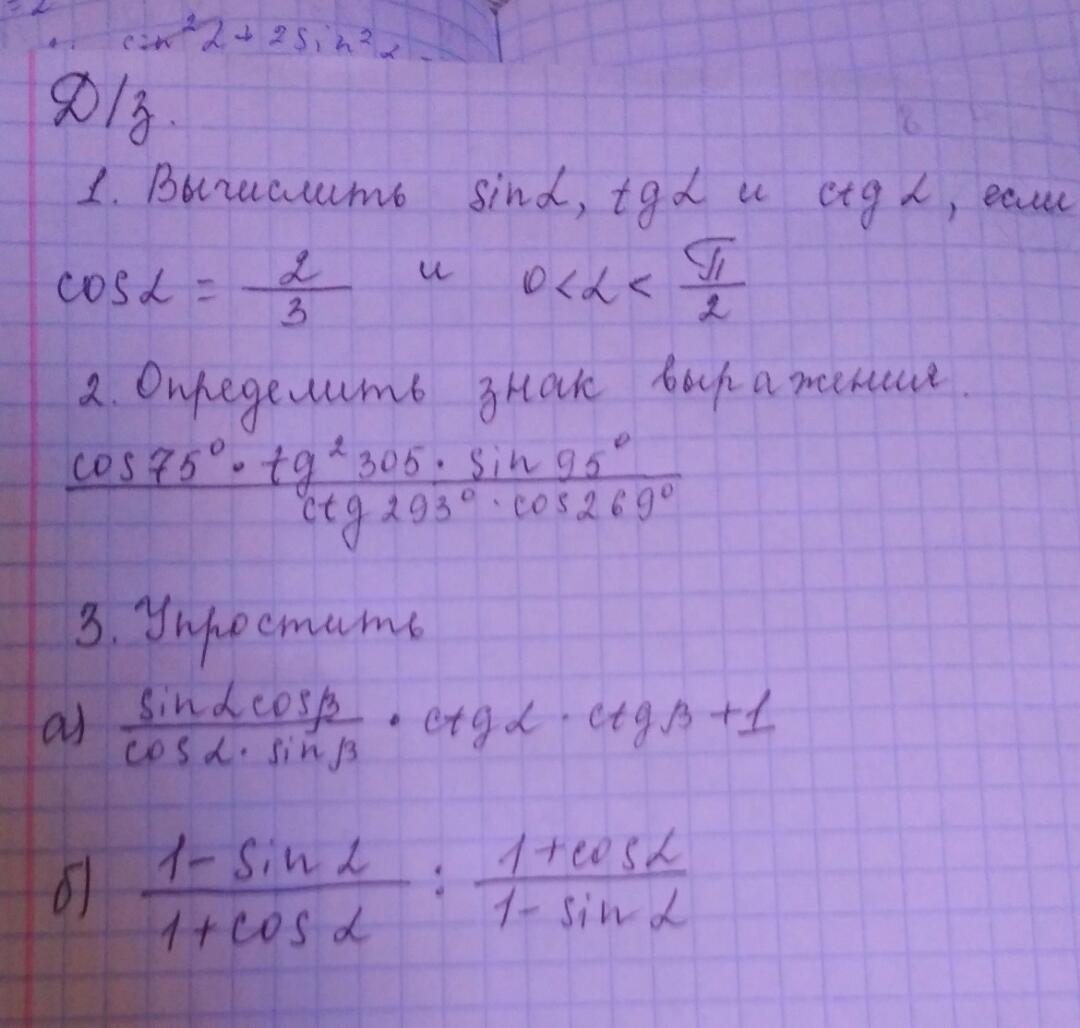 =2
sin²α + 2sin²α
Д/з.
1. Вычислить sinα, tgα и ctgα, если
cosα = 2/3 и 0<α< π/2
2. Определить знак выражения.
cos75°·tg²305·sin95°
ctg293°·cos269°
3. Упростить
а) sinαcosβ / cosα·sinβ · ctgα·ctgβ+1
б) 1-sinα / 1+cosα : 1+cosα / 1-sinα